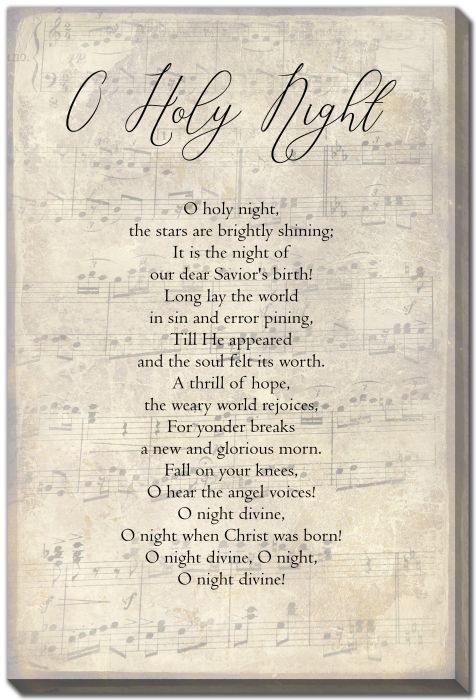 O Holy Night
O holy night,
the stars are brightly shining;
It is the night of
our dear Savior's birth!
Long lay the world
in sin and error pining,
Till He appeared
and the soul felt its worth.
A thrill of hope,
the weary world rejoices,
For yonder breaks
a new and glorious morn.
Fall on your knees,
O hear the angel voices!
O night divine,
O night when Christ was born!
O night divine, O night,
O night divine!